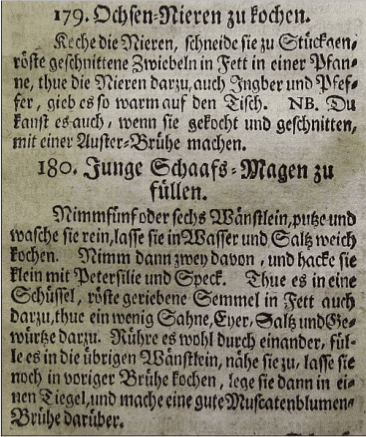 179. Ochsen-Nieren zu kochen.
Koche die Nieren, schneide sie zu Stückgen,
röste geschnittene Zwiebeln in Fett in einer Pfan-
ne, thue die Nieren darzu, auch Ingber und Pfef-
fer, gieb es so warm auf den Tisch. NB. Du
kanst es auch, wenn sie gekocht und geschnitten,
mit einer Auster-Brühe machen.
180. Junge Schaafs-Magen zu
füllen.
Nimm fünf oder sechs Wänstlein, putze und
wasche sie rein, lasse sie in Wasser und Saltz weich
kochen. Nimm dann zwey davon, und hacke sie
klein mit Petersilie und Speck. Thue es in eine
Schüssel, röste geriebene Semmel in Fett auch
darzu, thue ein wenig Sahne, Eyer, Saltz und Ge-
würtze darzu. Rühre es wohl durch einander, fül-
le es in die übrigen Wänstlein, nähe sie zu, lasse sie
noch in voriger Brühe kochen, lege sie dann in ei-
nen Tiegel, und mache eine gute Muscatenblumen-
Brühe darüber.